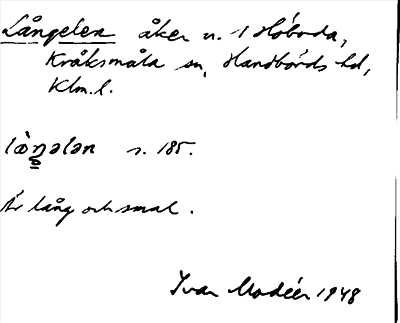 Långelen åker n. 1 Höboda,
Kråksmåla sn, Handbörds hd,
Klm. l.
s. 185.
Är lång och smal.
Ivar Modéer 1948